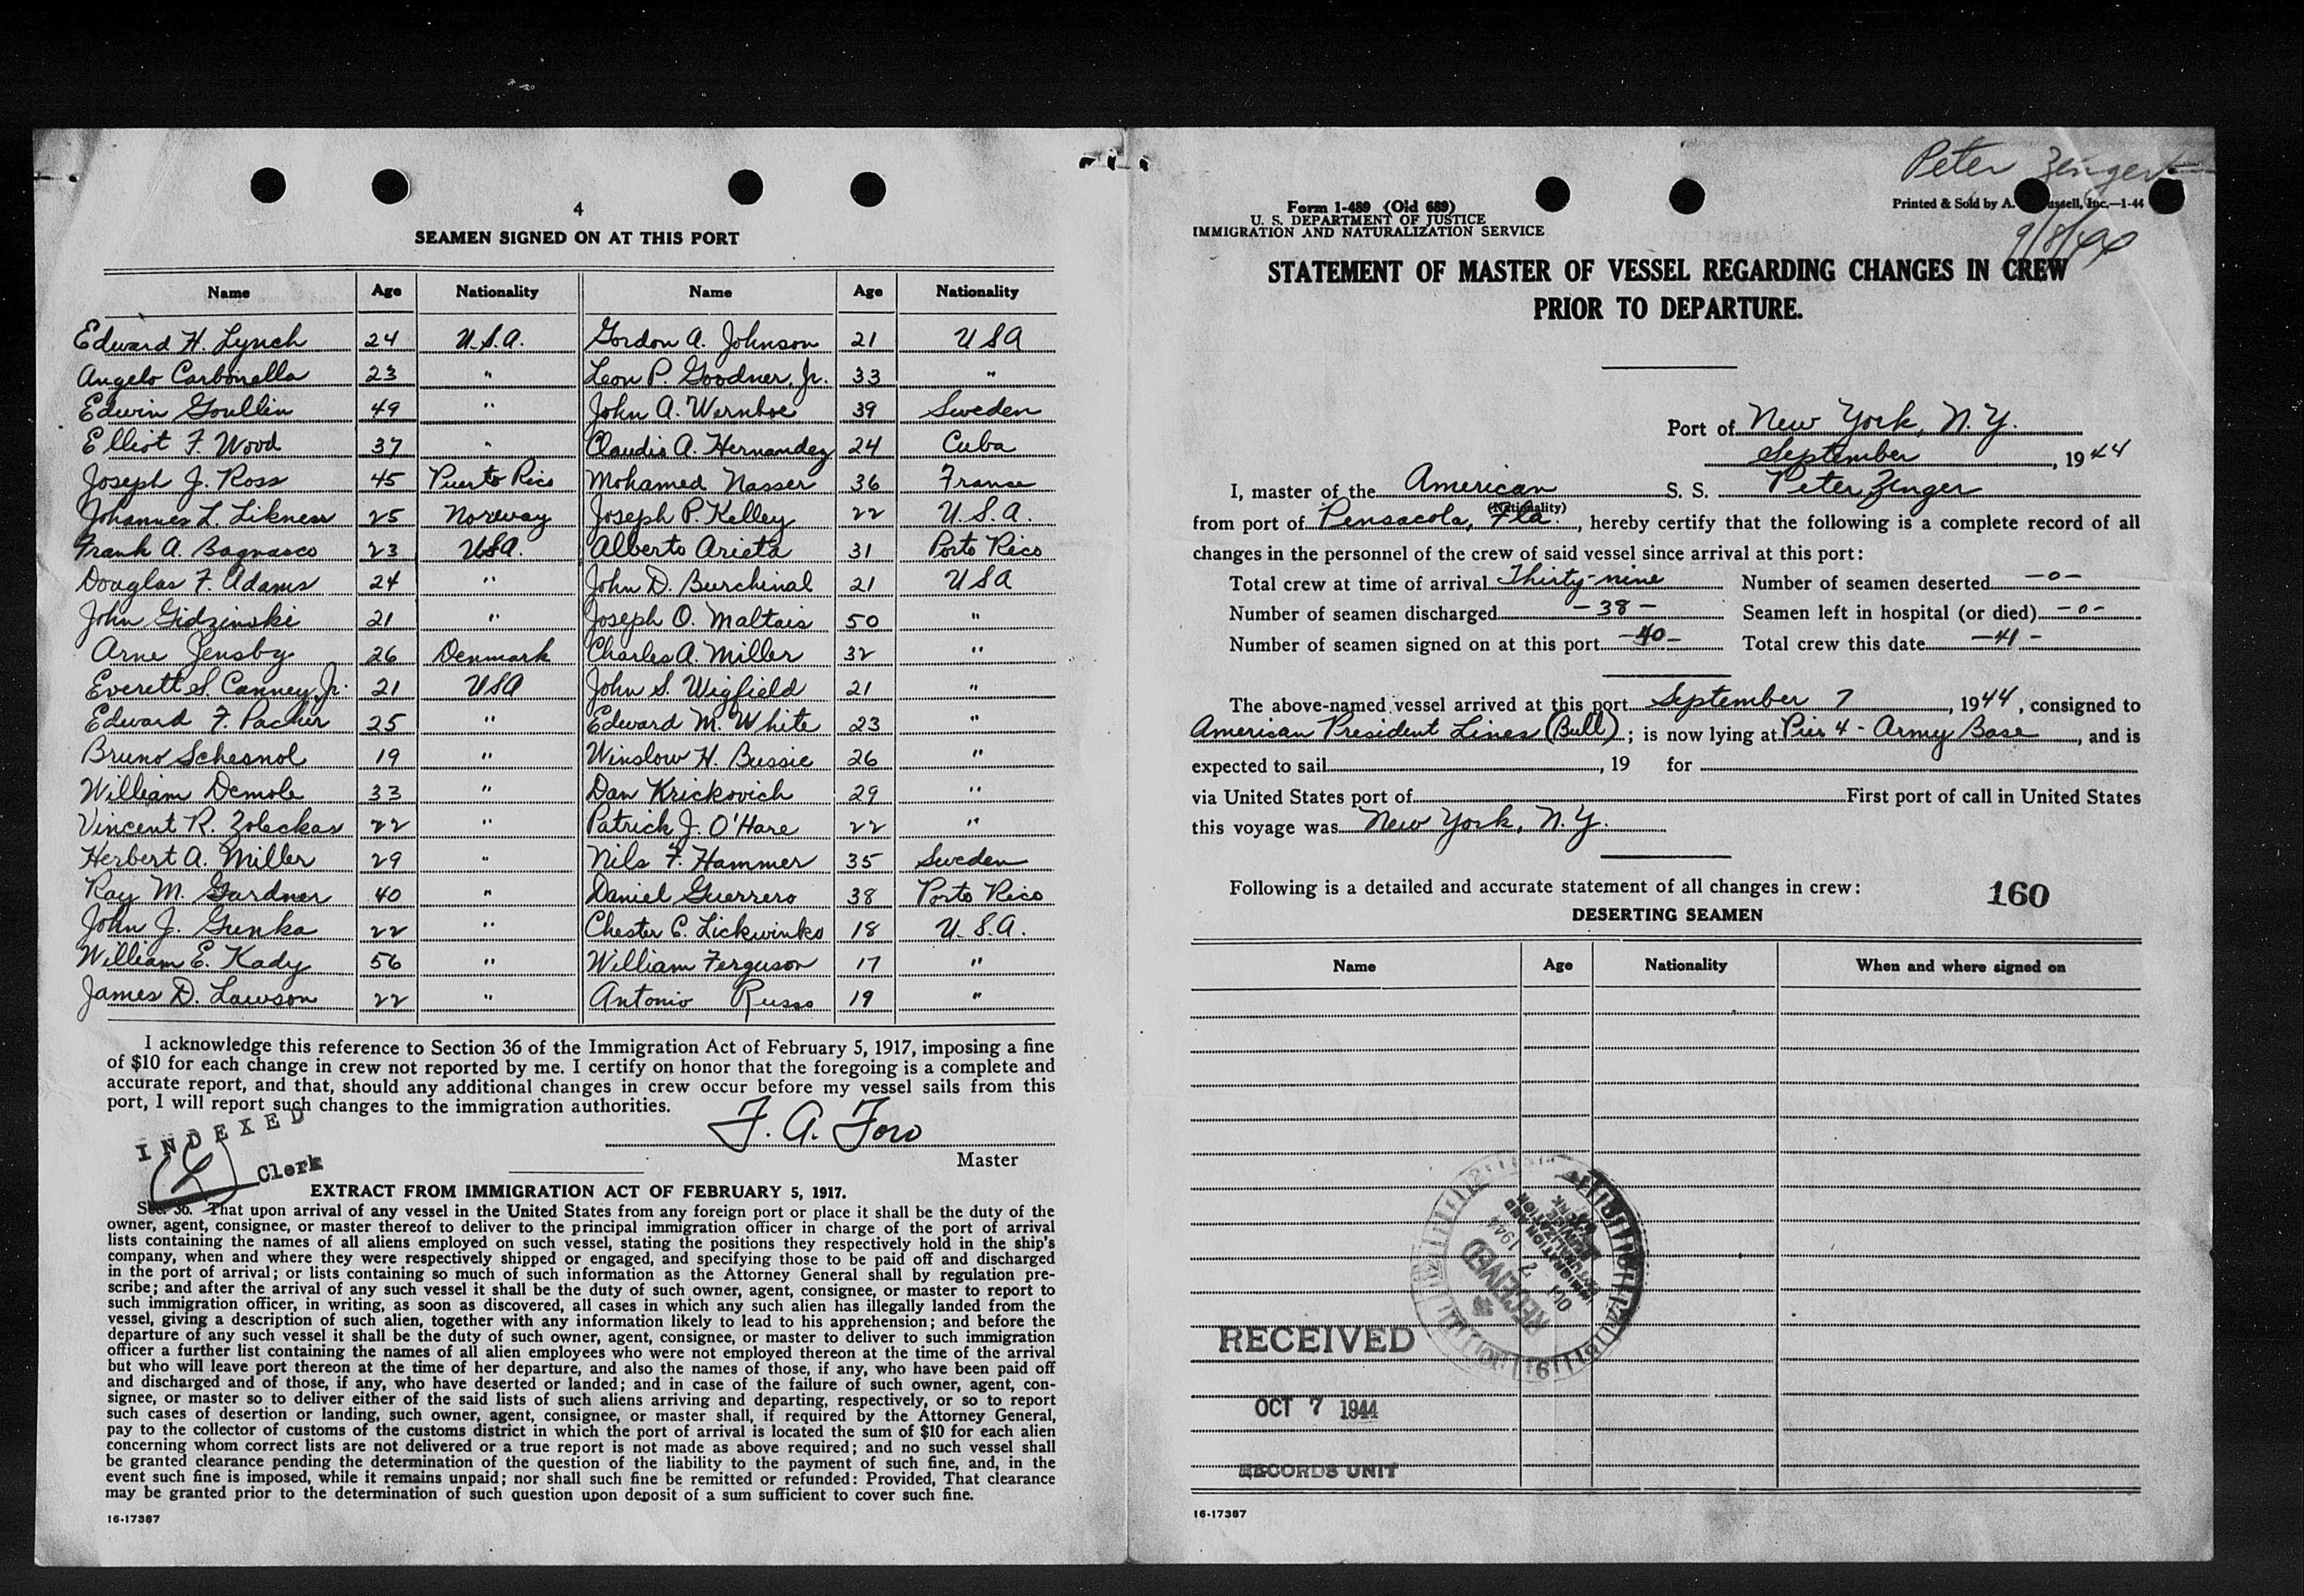 4
SEAMEN SIGNED ON AT THIS PORT
Name Age Nationality Name Age Nationality
Edward H. Lynch 24 U.S.A. Gordon A. Johnson 21 USA
Angelo Carbonella 23 " Leon P. Goodner, Jr. 33 "
Edwin Goullin 49 " John A. Wernboe 39 Sweden
Elliot F. Wood 37 " Claudio A. Hernandez 24 Cuba
Joseph J. Ross 45 Puerto Rico Mohamed Nasser 36 France
Johannes L. Likness 25 Norway Joseph P. Kelley 22 U.S.A.
Frank A. Bagnasco 23 USA. Alberto Arieta 31 Porto Rico
Douglas F. Adams 24 " John D. Burchinal 21 USA
John Gidzinski 21 " Joseph O. Maltais 50 "
Arne Jensby 26 Denmark Charles A. Miller 32 "
Everett S. Canney, Jr. 21 USA John S. Wigfield 21 "
Edward F. Pacher 25 " Edward M. White 23 "
Bruno Schesnol 19 " Winslow H. Bussie 26 "
William Demole 33 " Dan Krickovich 29 "
Vincent R. Zoleckas 22 " Patrick J. O'Hare 22 "
Herbert A. Miller 29 " Nils F. Hammer 35 Sweden
Ray M. Gardner 40 " Daniel Guerrero 38 Porto Rico
John J. Gunka 22 " Chester C. Lickwinko 18 U.S.A.
William E. Kady 56 " William Ferguson 17 "
James D. Lawson 22 " Antonio Russo 19 "
I acknowledge this reference to Section 36 of the Immigration Act of February 5, 1917, imposing a fine
of $10 for each change in crew not reported by me. I certify on honor that the foregoing is a complete and
accurate report, and that, should any additional changes in crew occur before my vessel sails from this
port, I will report such changes to the immigration authorities.
F. A. Ford
Master
INDEXED
Clerk
EXTRACT FROM IMMIGRATION ACT OF FEBRUARY 5, 1917.
Sec. 36. That upon arrival of any vessel in the United States from any foreign port or place it shall be the duty of the
owner, agent, consignee, or master thereof to deliver to the principal immigration officer in charge of the port of arrival
lists containing the names of all aliens employed on such vessel, stating the positions they respectively hold in the ship's
company, when and where they were respectively shipped or engaged, and specifying those to be paid off and discharged
in the port of arrival; or lists containing so much of such information as the Attorney General shall by regulation pre-
scribe; and after the arrival of any such vessel it shall be the duty of such owner, agent, consignee, or master to report to
such immigration officer, in writing, as soon as discovered, all cases in which any such alien has illegally landed from the
vessel, giving a description of such alien, together with any information likely to lead to his apprehension; and before the
departure of any such vessel it shall be the duty of such owner, agent, consignee, or master to deliver to such immigration
officer a further list containing the names of all alien employees who were not employed thereon at the time of the arrival
but who will leave port thereon at the time of her departure, and also the names of those, if any, who have been paid off
and discharged and of those, if any, who have deserted or landed; and in case of the failure of such owner, agent, con-
signee, or master so to deliver either of the said lists of such aliens arriving and departing, respectively, or so to report
such cases of desertion or landing, such owner, agent, consignee, or master shall, if required by the Attorney General,
pay to the collector of customs of the customs district in which the port of arrival is located the sum of $10 for each alien
concerning whom correct lists are not delivered or a true report is not made as above required; and no such vessel shall
be granted clearance pending the determination of the question of the liability to the payment of such fine, and, in the
event such fine is imposed, while it remains unpaid; nor shall such fine be remitted or refunded: Provided, That clearance
may be granted prior to the determination of such question upon deposit of a sum sufficient to cover such fine.
16-17387
Peter Zenger
Form 1-489 (Old 689)
U. S. DEPARTMENT OF JUSTICE
IMMIGRATION AND NATURALIZATION SERVICE
Printed & Sold by A. ussell, Inc.—1-44
9/8/44
STATEMENT OF MASTER OF VESSEL REGARDING CHANGES IN CREW
PRIOR TO DEPARTURE.
Port of New York, N.Y.
September, 1944
I, master of the American S. S. Peter Zenger
(Nationality)
from port of Pensacola, Fla., hereby certify that the following is a complete record of all
changes in the personnel of the crew of said vessel since arrival at this port:
Total crew at time of arrival Thirty-nine Number of seamen deserted -0-
Number of seamen discharged -38- Seamen left in hospital (or died) -0-
Number of seamen signed on at this port -40- Total crew this date -41-
The above-named vessel arrived at this port September 7, 1944, consigned to
American President Lines (Bull); is now lying at Pier 4 - Army Base, and is
expected to sail, 19 for
via United States port of First port of call in United States
this voyage was New York, N.Y.
Following is a detailed and accurate statement of all changes in crew: 160
DESERTING SEAMEN
Name Age Nationality When and where signed on
RECEIVED
7 1944
IMMIGRATION AND
RECEIVED
OCT 7 1944
RECORDS UNIT
16-17387